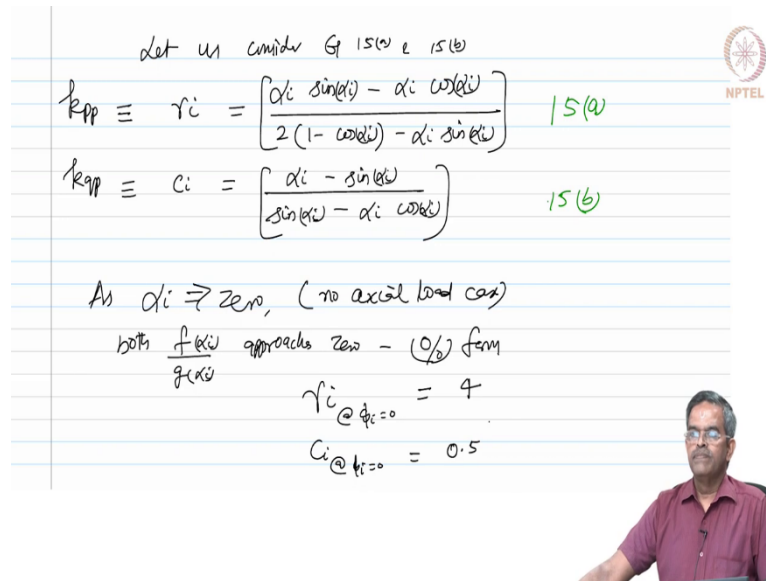 Let us consider Eq 15(a) & 15(b)
NPTEL
kpp ≡ ri = [αi sin(αi) - αi cos(αi) / 2(1 - cos(αi)) - αi sin(αi)] 15(a)
kqp ≡ ci = [αi - sin(αi) / sin(αi) - αi cos(αi)] 15(b)
As αi ⇒ zero, (no axial load case)
both f(αi)/g(αi) approaches zero - (0/0) form
ri @ϕi=0 = 4
ci @ϕi=0 = 0.5